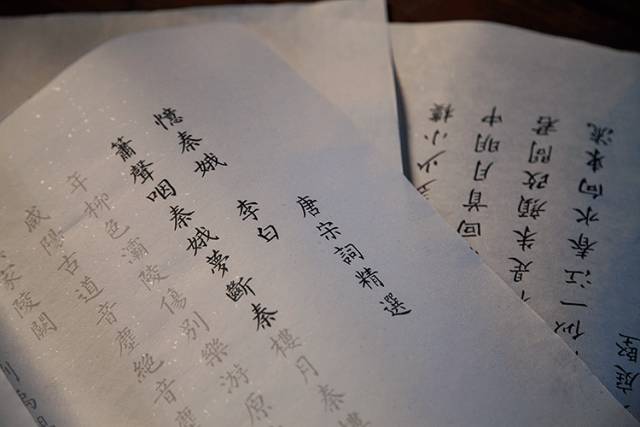 唐宋詞精選
憶秦娥 李白
簫聲咽秦娥夢斷秦樓月秦樓
年柳色灞陵傷別樂游原
咸陽古道音塵絕音塵
家陵闕
少小樓
回首月明中
是朱顏改問君
似一江春水向東流